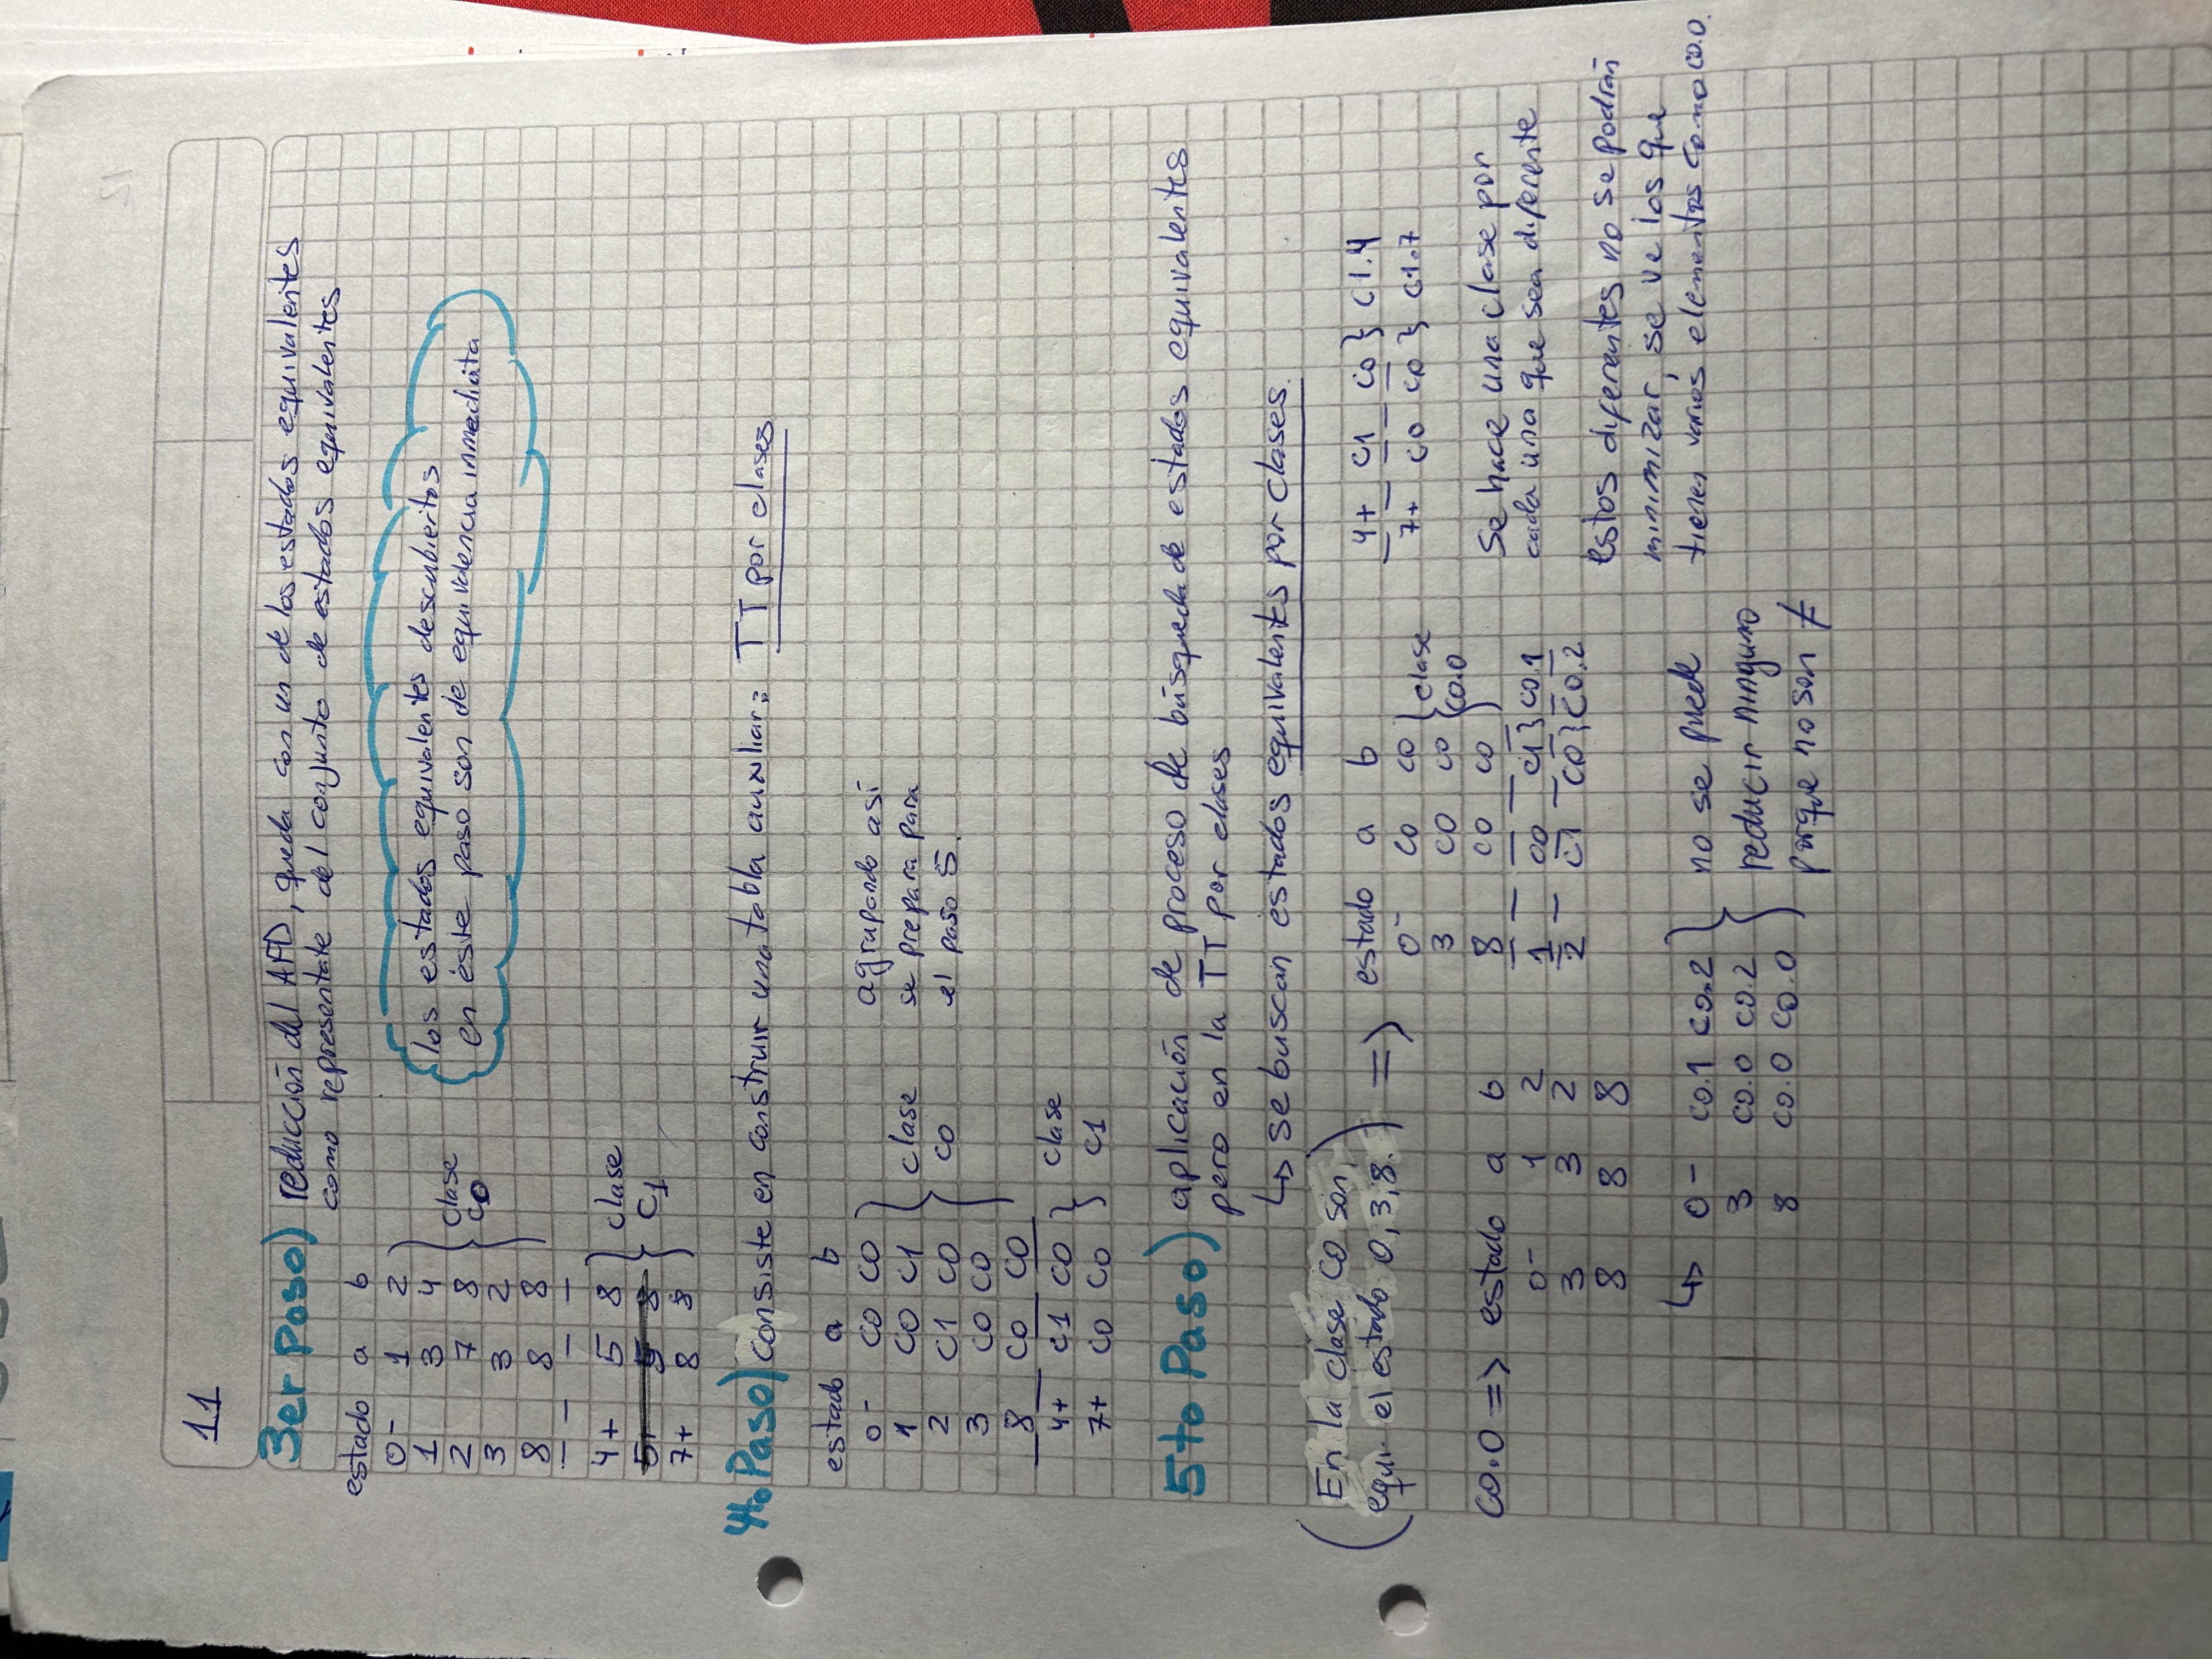 11
3er Paso) reducción del AFD, queda con un de los estados equivalentes
como representate del conjunto de estados equivalentes
estado a b
0- 1 2
1 3 4
2 7 8
3 3 2
8 8 8
clase
C0
los estados equivalentes descubiertos
en éste paso son de equivalencia inmediata
4+ 5 8
5+ 5 8
7+ 8 8
clase
C1
4to Paso) consiste en construir una tabla auxiliar: TT por clases
estado a b
0- C0 C0
1 C0 C1
2 C1 C0
3 C0 C0
8 C0 C0
clase
C0
4+ C1 C0
7+ C0 C0
clase
C1
agrupando así
se prepara para
el paso 5.
5to Paso) aplicación de proceso de búsqueda de estados equivalentes
pero en la TT por clases
↳ se buscan estados equivalentes por clases.
(En la clase C0 son,
equi. el estado 0, 3, 8.) =>
estado a b
0- C0 C0
3 C0 C0
8 C0 C0
clase
C0.0
1 C0 C1} C0.1
2 C1 C0} C0.2
4+ C1 C0} C1.4
7+ C0 C0} C1.7
Se hace una clase por
cada una que sea diferente
estos diferentes no se podrán
minimizar, se ve los que
tienen varios elementos como C0.0.
C0.0 => estado a b
0- 1 2
3 3 2
8 8 8
↳ 0- C0.1 C0.2
3 C0.0 C0.2
8 C0.0 C0.0
no se puede
reducir ninguno
porque no son ≠
12